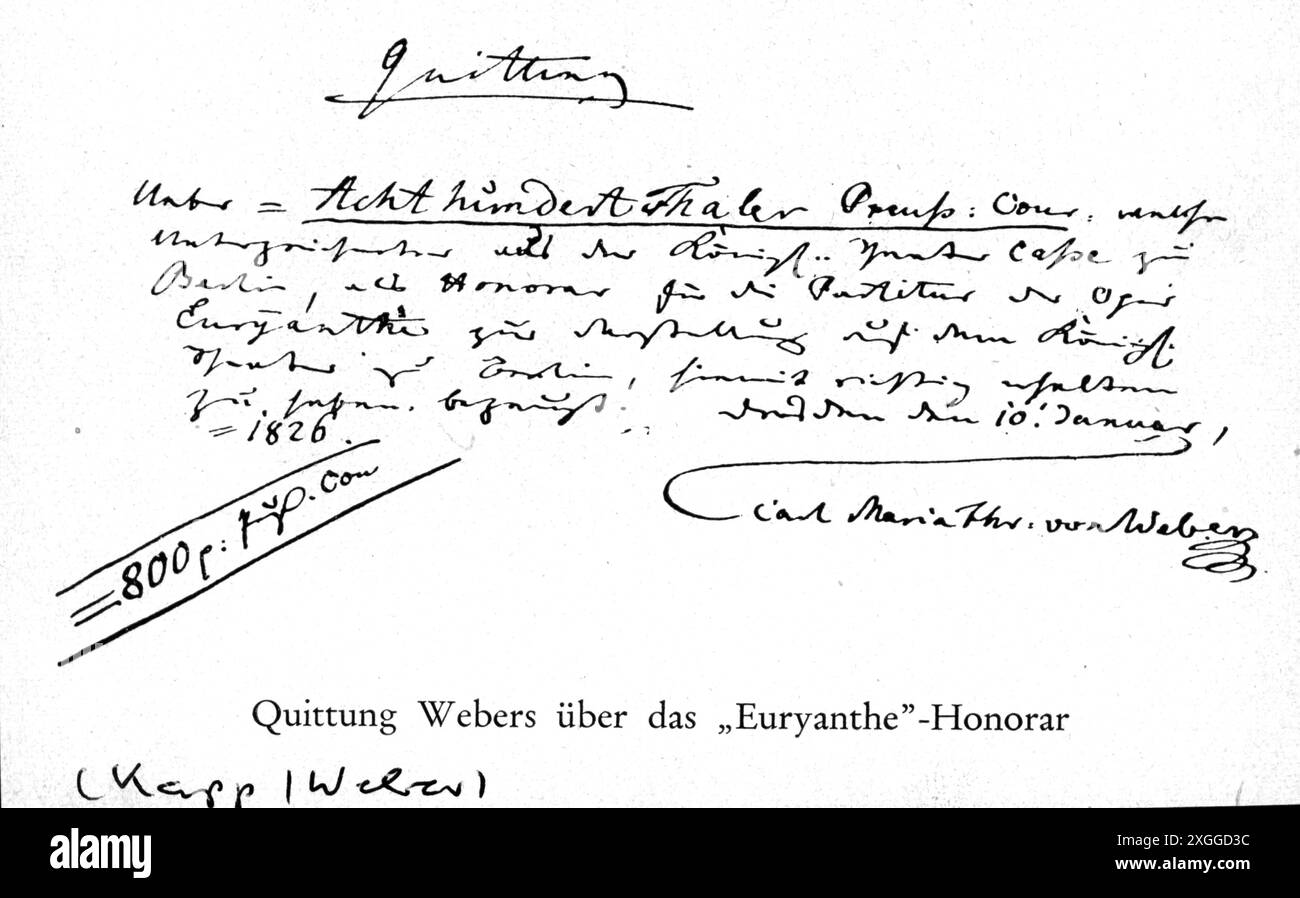 Quittung
Ueber = Acht hundert Thaler Preuß: Cour: welche
Unterzeichneter aus der Königl: Theater Casse zu
Berlin, als Honorar für die Partitur der Oper
Euryanthe zur Darstellung auf dem Königl:
Theater zu Berlin, hiemit richtig erhalten
zu haben bezeugt. Dresden den 10t. Januar,
= 1826.
= 800 r: Preuß. Cour
Carl Maria Fhr: von Weber
Quittung Webers über das „Euryanthe”-Honorar
(Kapp / Weber)
alamy
Image ID: 2XGGD3C
www.alamy.com